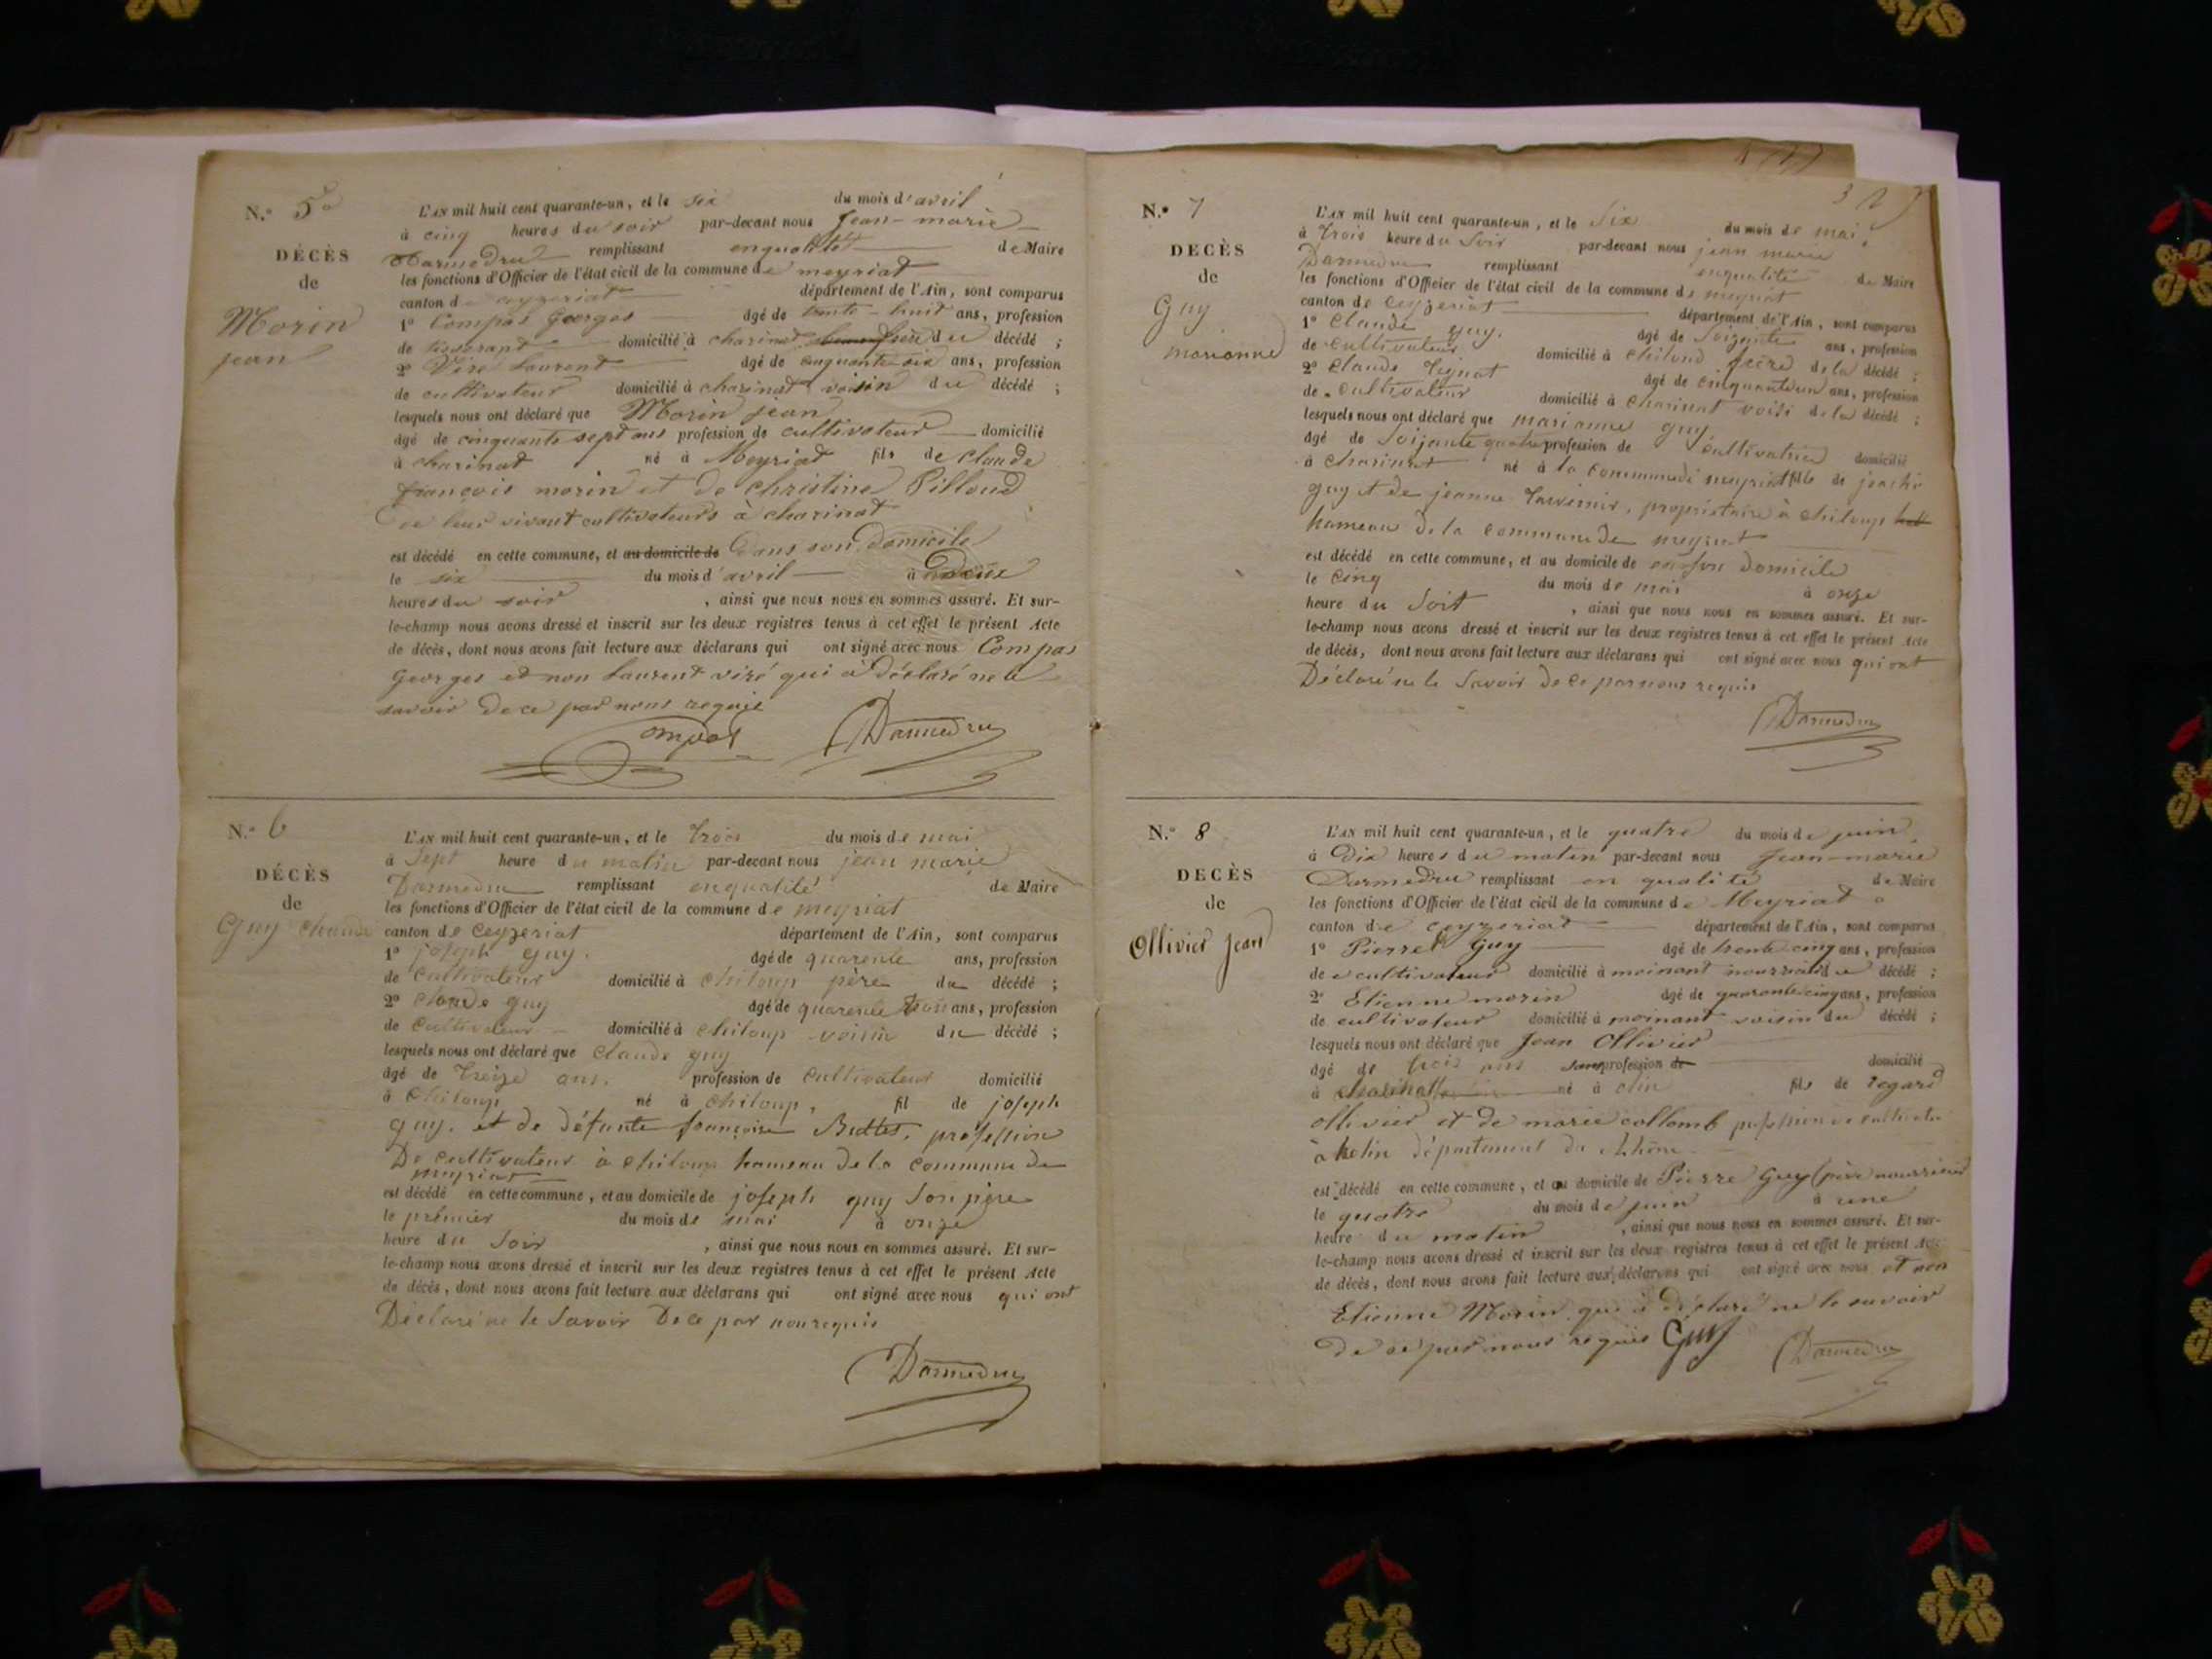 N.° 5
DÉCÈS
de
Morin
jean
L'AN mil huit cent quarante-un, et le six du mois d'avril
à cinq heures du soir par-devant nous Jean-marie
Darmedru remplissant enqualité de Maire
les fonctions d'Officier de l'état civil de la commune de meyriat
canton de ceyzeriat département de l'Ain, sont comparus
1° Compas Georges âgé de trente-huit ans, profession
de tisserant domicilié à charinat du décédé ;
2° Véré Laurent âgé de cinquante six ans, profession
de cultivateur domicilié à charinat voisin du décédé ;
lesquels nous ont déclaré que Morin jean
âgé de cinquante sept ans profession de cultivateur domicilié
à charinat né à Meyriat fils de claude
françois morin et de christine Pilloud
de leur vivant cultivateurs à charinat
est décédé en cette commune, et au domicile de Dans son Domicile
le six du mois d'avril à Deux
heures du soir , ainsi que nous nous en sommes assuré. Et sur-
le-champ nous avons dressé et inscrit sur les deux registres tenus à cet effet le présent Acte
de décès, dont nous avons fait lecture aux déclarans qui ont signé avec nous Compas
Georges et non Laurent véré qui a déclaré ne le
savoir de ce par nous requis
Compas Darmedru
N.° 6
DÉCÈS
de
Guy Claude
L'AN mil huit cent quarante-un, et le trois du mois de mai
à sept heure du matin par-devant nous jean marie
Darmedru remplissant enqualité de Maire
les fonctions d'Officier de l'état civil de la commune de meyriat
canton de Ceyzeriat département de l'Ain, sont comparus
1° joseph guy. âgé de quarente ans, profession
de Cultivateur domicilié à chiloup père du décédé ;
2° claude guy âgé de quarente trois ans, profession
de Cultivateur domicilié à chiloup voisin du décédé ;
lesquels nous ont déclaré que claude guy
âgé de treize ans. profession de cultivateur domicilié
à Chiloup né à chiloup, fil de joseph
guy. et de défunte françoise Buttet. profession
De cultivateur à chiloup hameau de la commune de
meyriat
est décédé en cette commune, et au domicile de joseph guy son père
le premier du mois de mai à onze
heure du soir , ainsi que nous nous en sommes assuré. Et sur-
le-champ nous avons dressé et inscrit sur les deux registres tenus à cet effet le présent Acte
de décès, dont nous avons fait lecture aux déclarans qui ont signé avec nous qui ont
Déclaré ne le savoir De ce par nous requis
Darmedru
N.° 7
DECÈS
de
Guy
marianne
L'AN mil huit cent quarante-un, et le six du mois de mai.
à trois heure du soir par-devant nous jean marie
Darmedru remplissant enqualité de Maire
les fonctions d'Officier de l'état civil de la commune de meyriat
canton de ceyzeriat département de l'Ain, sont comparus
1° Claude guy. âgé de soixante ans, profession
de cultivateur domicilié à chiloup frère de la décédé ;
2° Claude âgé de cinquanteun ans, profession
de cultivateur domicilié à charinat voisi de la décédé ;
lesquels nous ont déclaré que marianne guy
âgé de soixante quatre profession de cultivatrice domicilié
à charinat né à la commune de meyriat fille de
guy et de jeanne propriétaire à chiloup
hameau de la commune de meyriat
est décédé en cette commune, et au domicile de en son domicile
le cinq du mois de mai à onze
heure du soir , ainsi que nous nous en sommes assuré. Et sur-
le-champ nous avons dressé et inscrit sur les deux registres tenus à cet effet le présent Acte
de décès, dont nous avons fait lecture aux déclarans qui ont signé avec nous qui ont
Déclaré ne le savoir de ce par nous requis
Darmedru
N.° 8
DECÈS
de
Ollivier Jean
L'AN mil huit cent quarante-un, et le quatre du mois de juin
à Dix heures du matin par-devant nous Jean-marie
Darmedru remplissant en qualité de Maire
les fonctions d'Officier de l'état civil de la commune de Meyriat
canton de ceyzeriat département de l'Ain, sont comparus
1° Pierre Guy âgé de trente cinq ans, profession
de cultivateur domicilié à moinant du décédé ;
2° Etienne morin âgé de quarante cinq ans, profession
de cultivateur domicilié à moinant voisin du décédé ;
lesquels nous ont déclaré que Jean Ollivier
âgé de trois ans sans profession de domicilié
à né à fils de
ollivier et de marie collomb profession de
à département du Rhône
est décédé en cette commune, et au domicile de Pierre Guy père nourricier
le quatre du mois de juin à une
heure du matin , ainsi que nous nous en sommes assuré. Et sur-
le-champ nous avons dressé et inscrit sur les deux registres tenus à cet effet le présent Acte
de décès, dont nous avons fait lecture aux déclarans qui ont signé avec nous et non
Etienne Morin qui a déclaré ne le savoir
de ce par nous requis Guy Darmedru